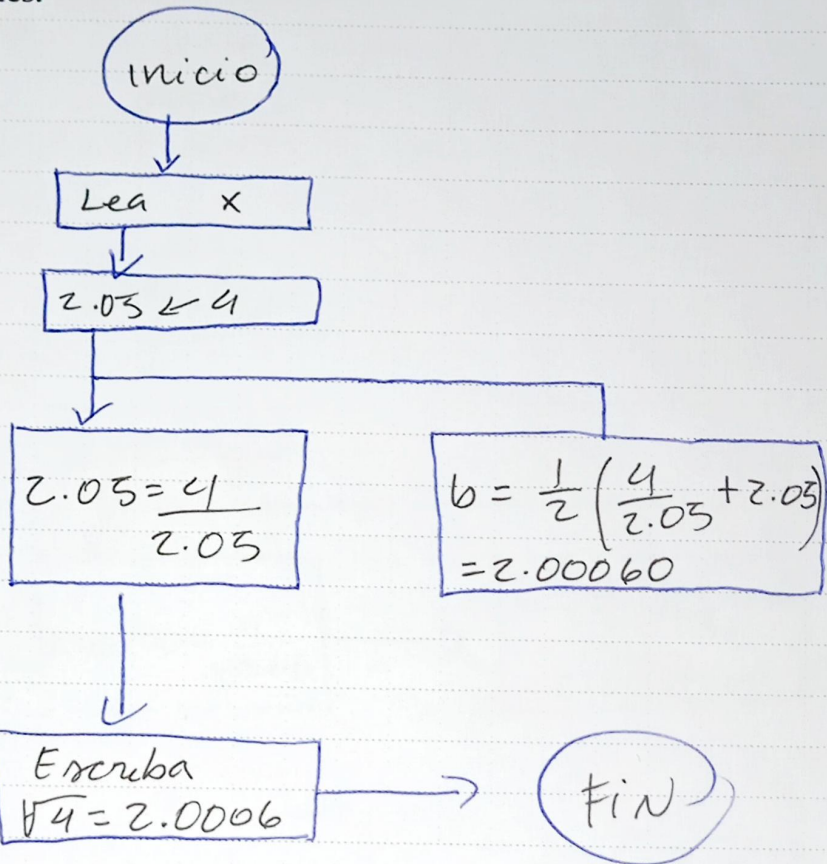 Inicio
Lea x
2.05 ← 4
2.05 = 4/2.05
b = 1/2 (4/2.05 + 2.05)
= 2.00060
Escriba
√4 = 2.0006
FiN